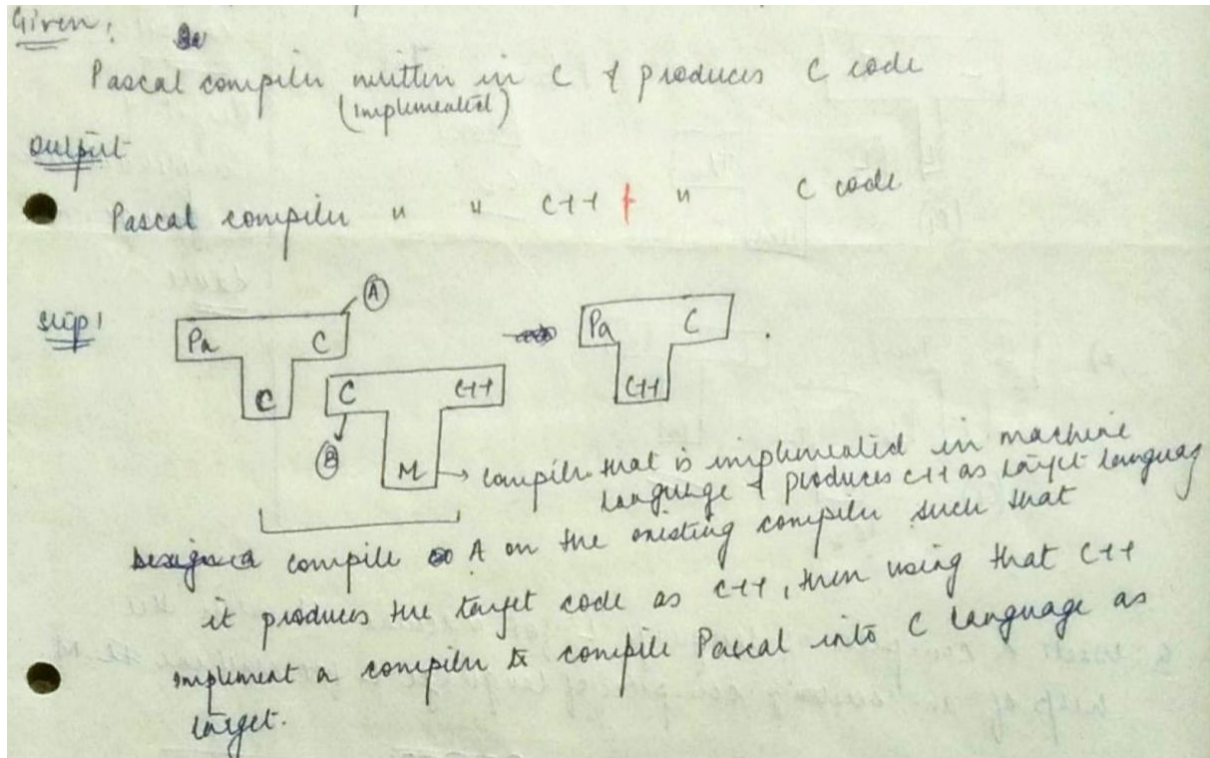 Given:
Pascal compiler written in C & produces C code
(implemented)
Output
Pascal compiler " " C++ & " C code
Step 1
A
Pa C
C
C C++
B
M
Pa C
C++
compiler that is implemented in machine
language & produces C++ as target language
compile A on the existing compiler such that
it produces the target code as C++, then using that C++
implement a compiler to compile Pascal into C language as
target.